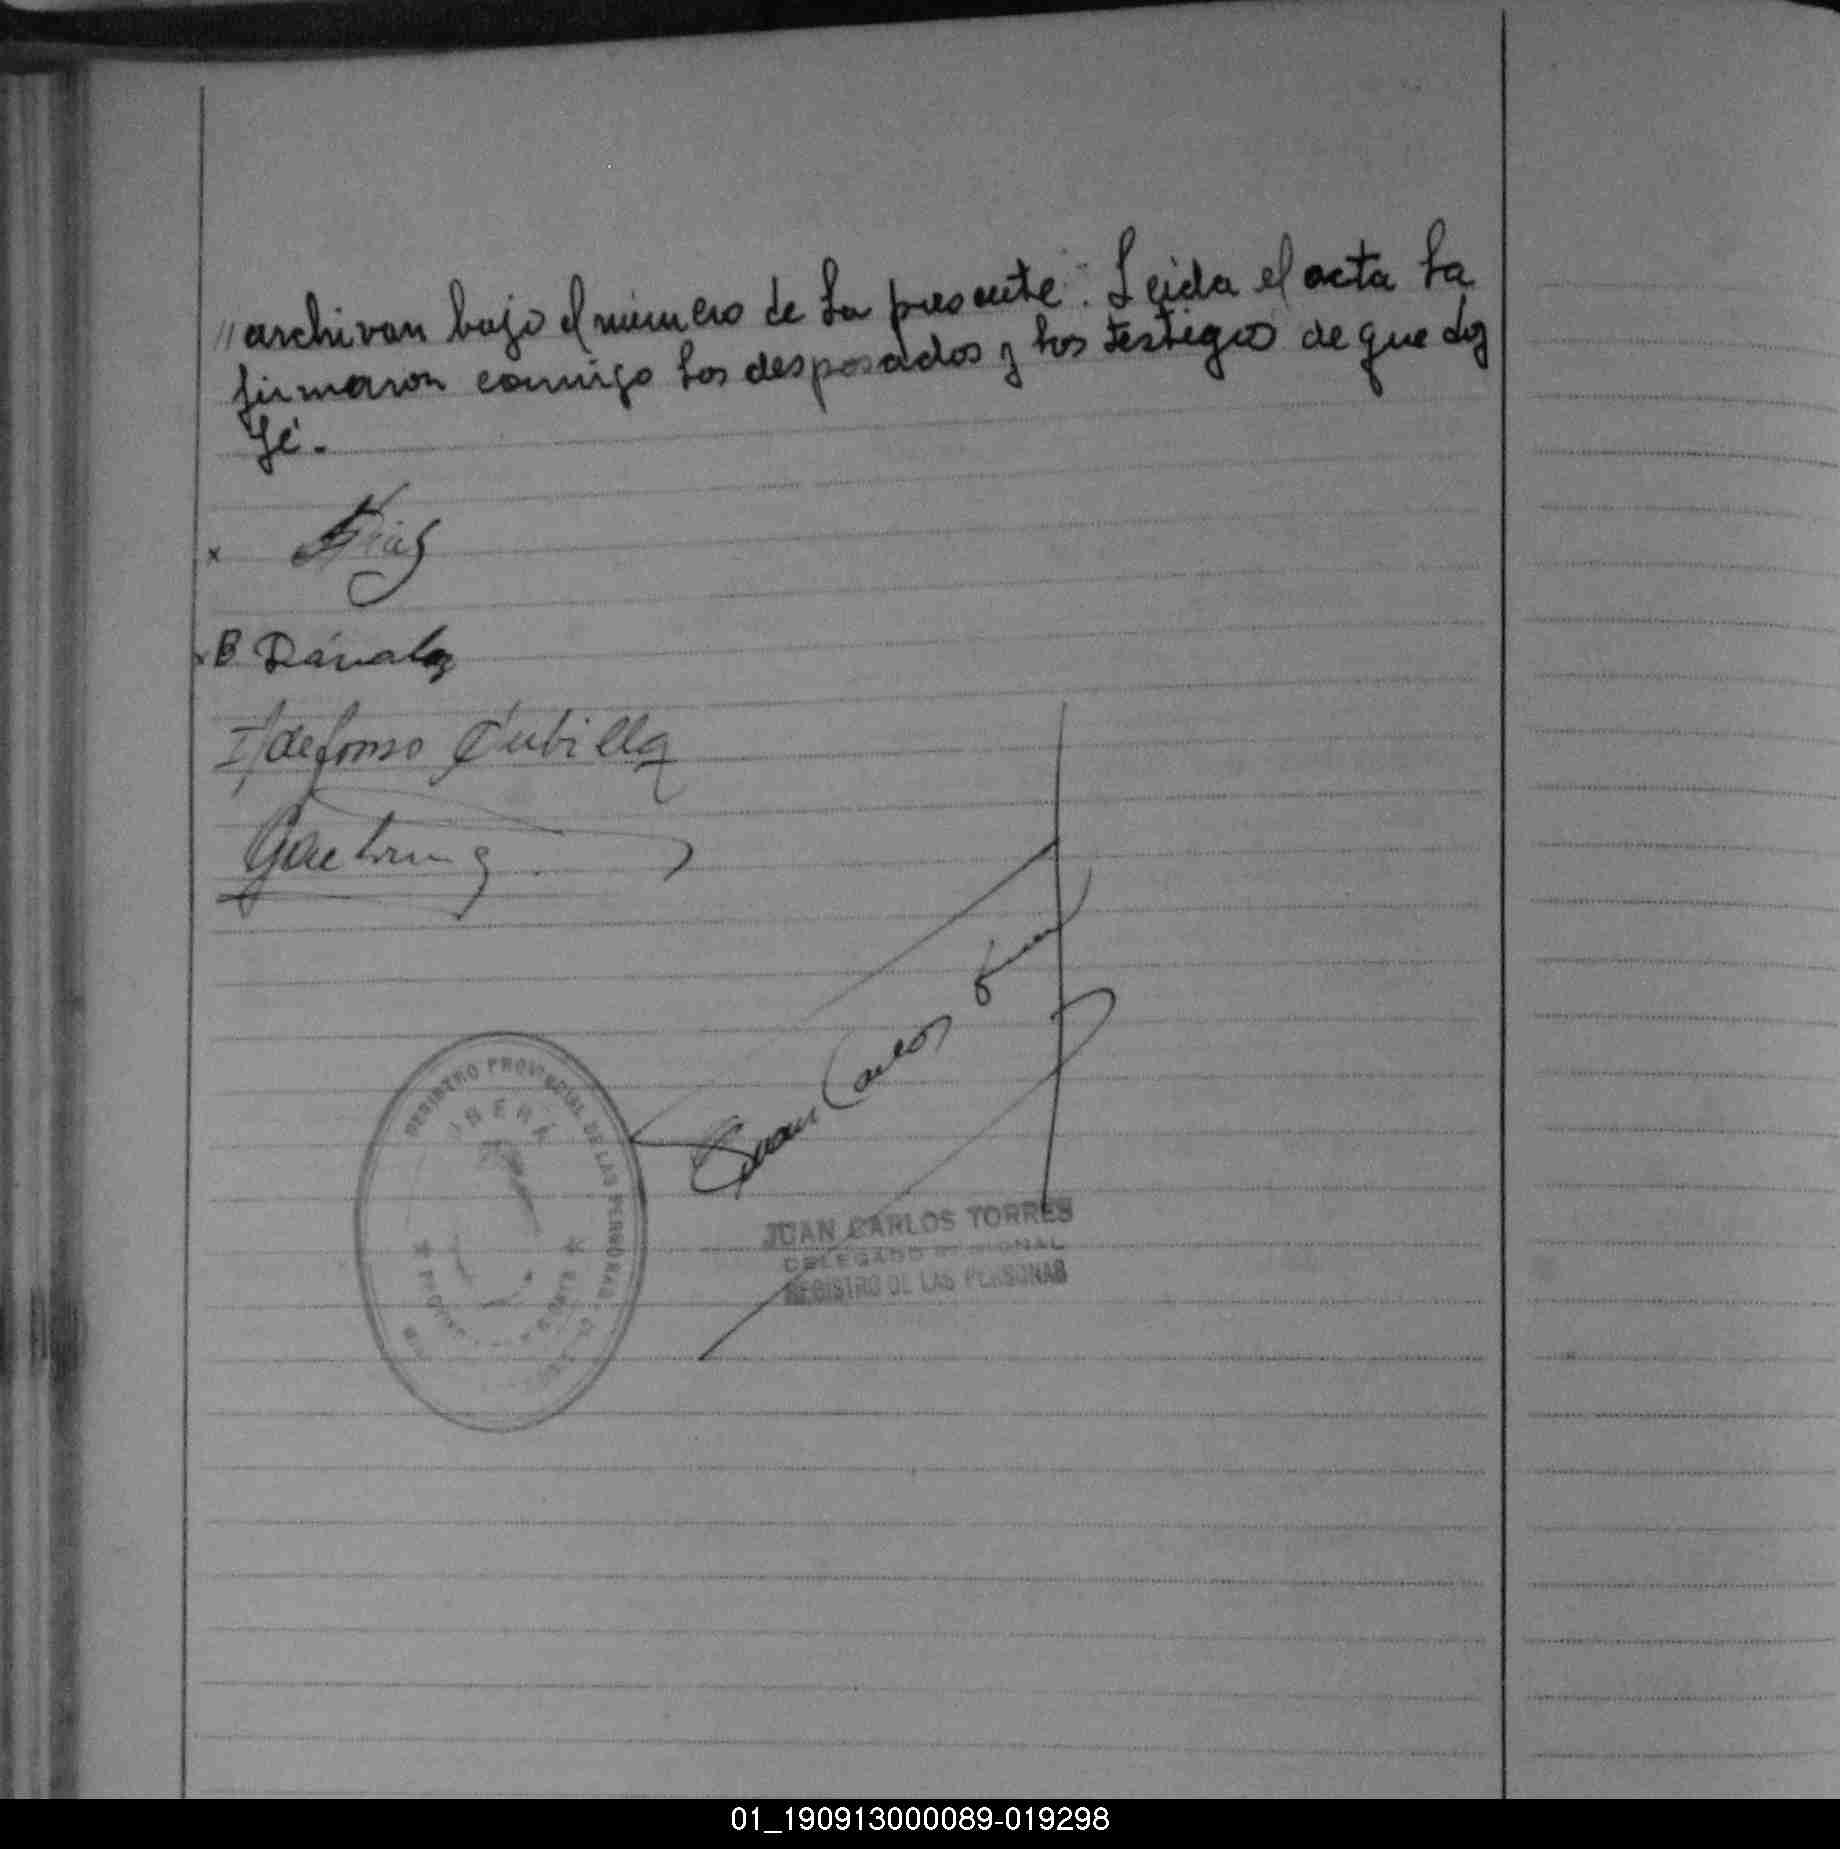 // archivan bajo el número de la presente. Leida el acta la
firmaron conmigo los desposados y los testigos de que doy
fé.
x Diaz
x B Dávalos
Ildefonso Cubilla
Juan Carlos
REGISTRO PROVINCIAL DE LAS PERSONAS
JUAN CARLOS TORRES
DELEGADO REGIONAL
REGISTRO DE LAS PERSONAS
01_190913000089-019298